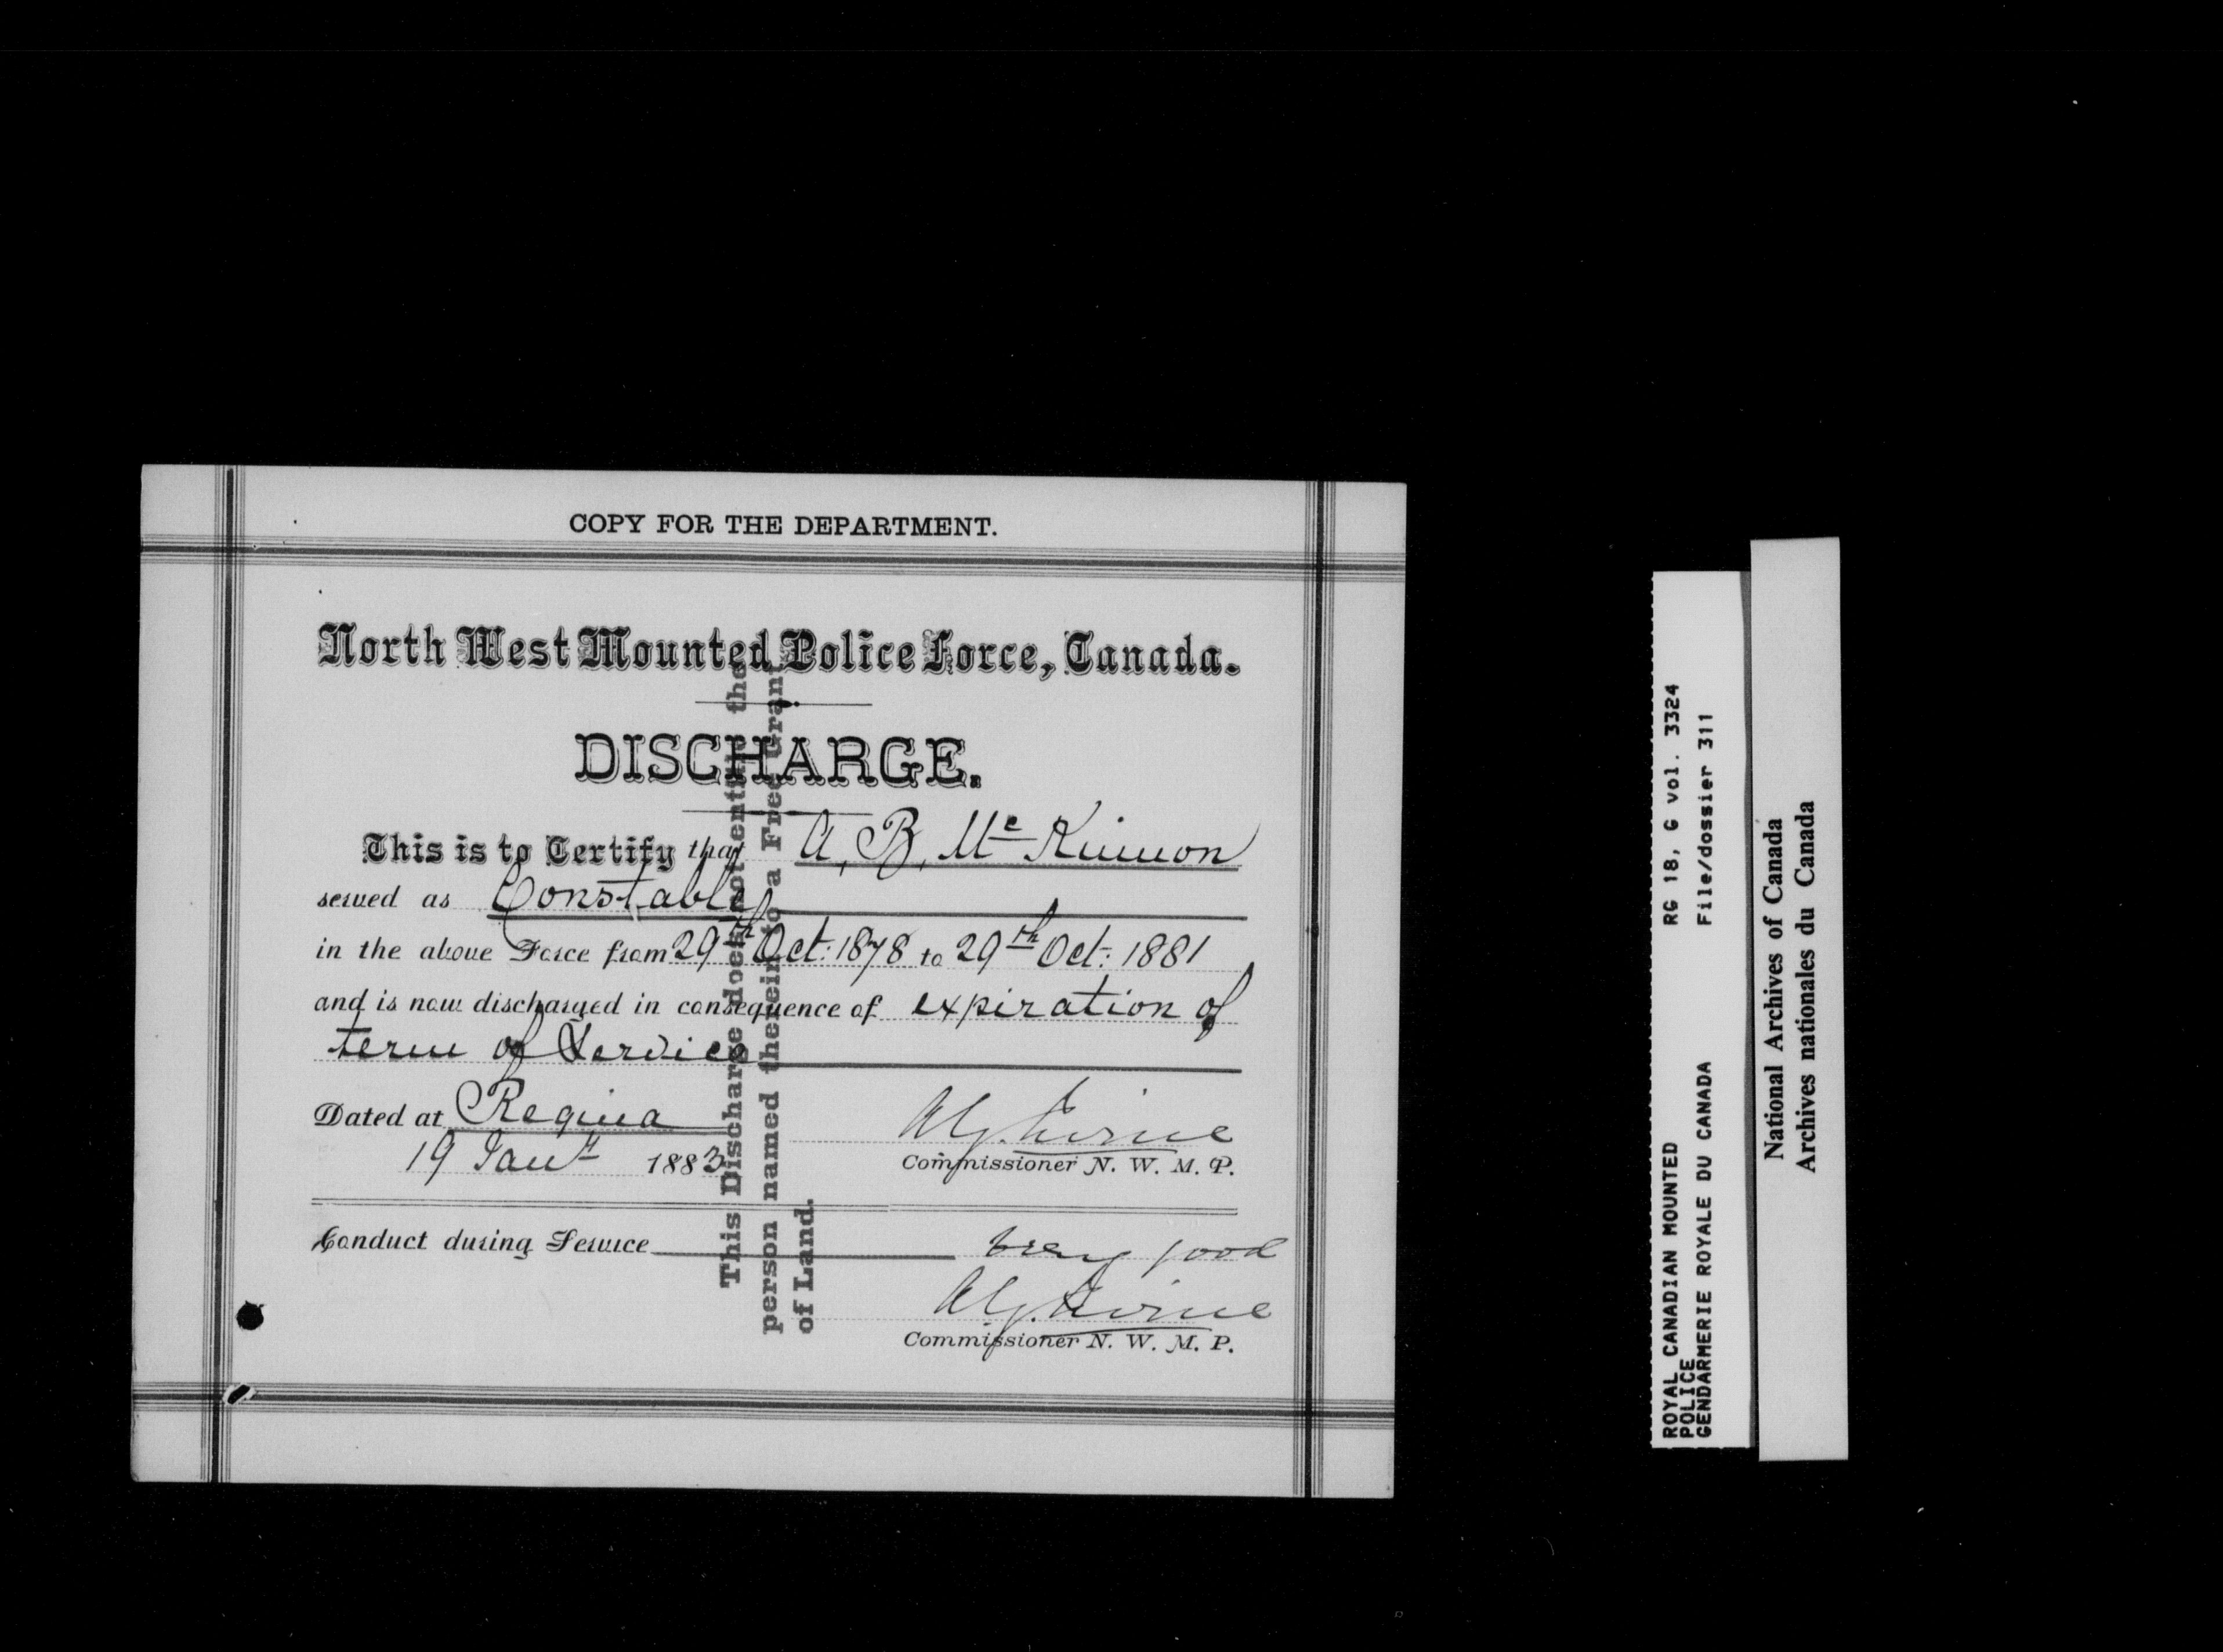 COPY FOR THE DEPARTMENT.
North West Mounted Police Force, Canada.
DISCHARGE.
This is to Certify that A. B. McKinnon
served as Constable
in the above Force from 29th Oct: 1878 to 29th Oct: 1881
and is now discharged in consequence of expiration of
term of Service
Dated at Regina
19 Jany 1883
A G. Irvine
Commissioner N. W. M. P.
Conduct during Service very good
A G. Irvine
Commissioner N. W. M. P.
This Discharge does not entitle the
person named therein to a Free Grant
of Land.
ROYAL CANADIAN MOUNTED RG 18, G vol. 3324
POLICE
GENDARMERIE ROYALE DU CANADA File/dossier 311
National Archives of Canada
Archives nationales du Canada